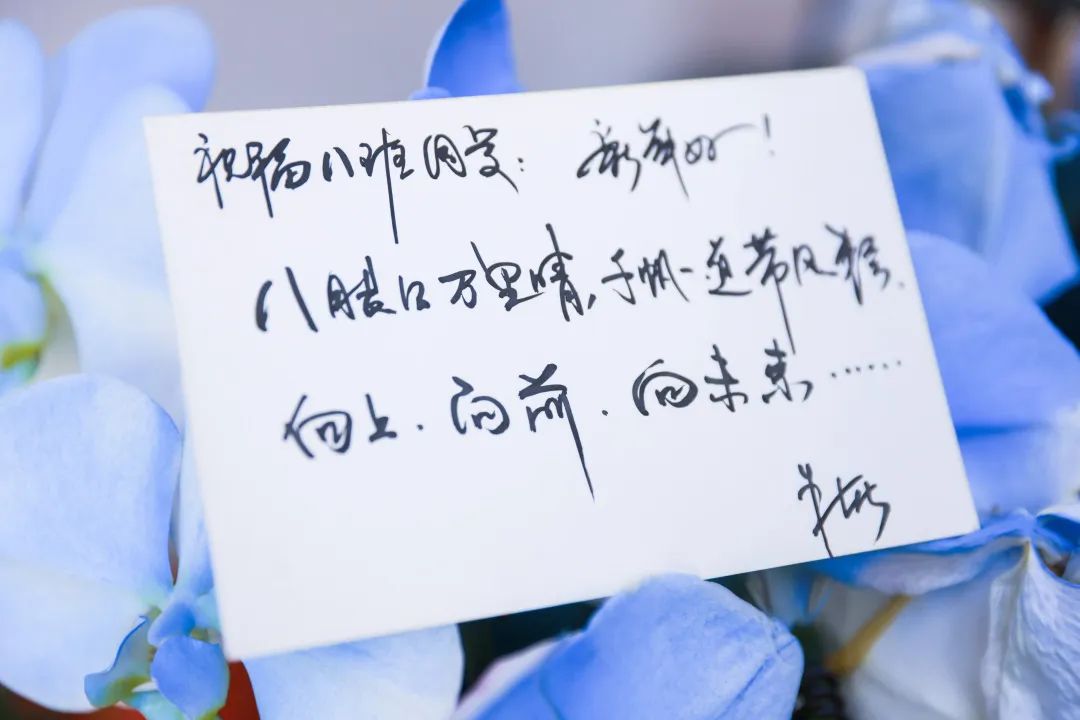 祝福八班同学：新年好！
八月长江万里晴，千帆一道带风轻.
向上.向前.向未来，……